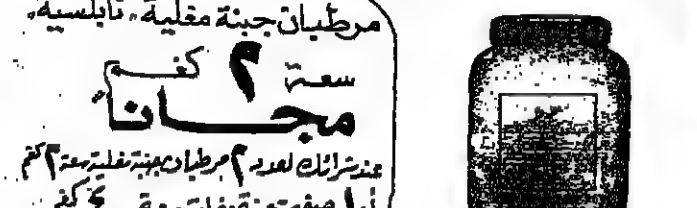 مرطبان جبنة مغلية "نابلسية"
سعة ٢ كغم
مجاناً
عند شرائك لعدد ٢ مرطبان جبنة مغلية سعة ٢ كغم
أو ١ جبنة مغلية سعة كغم